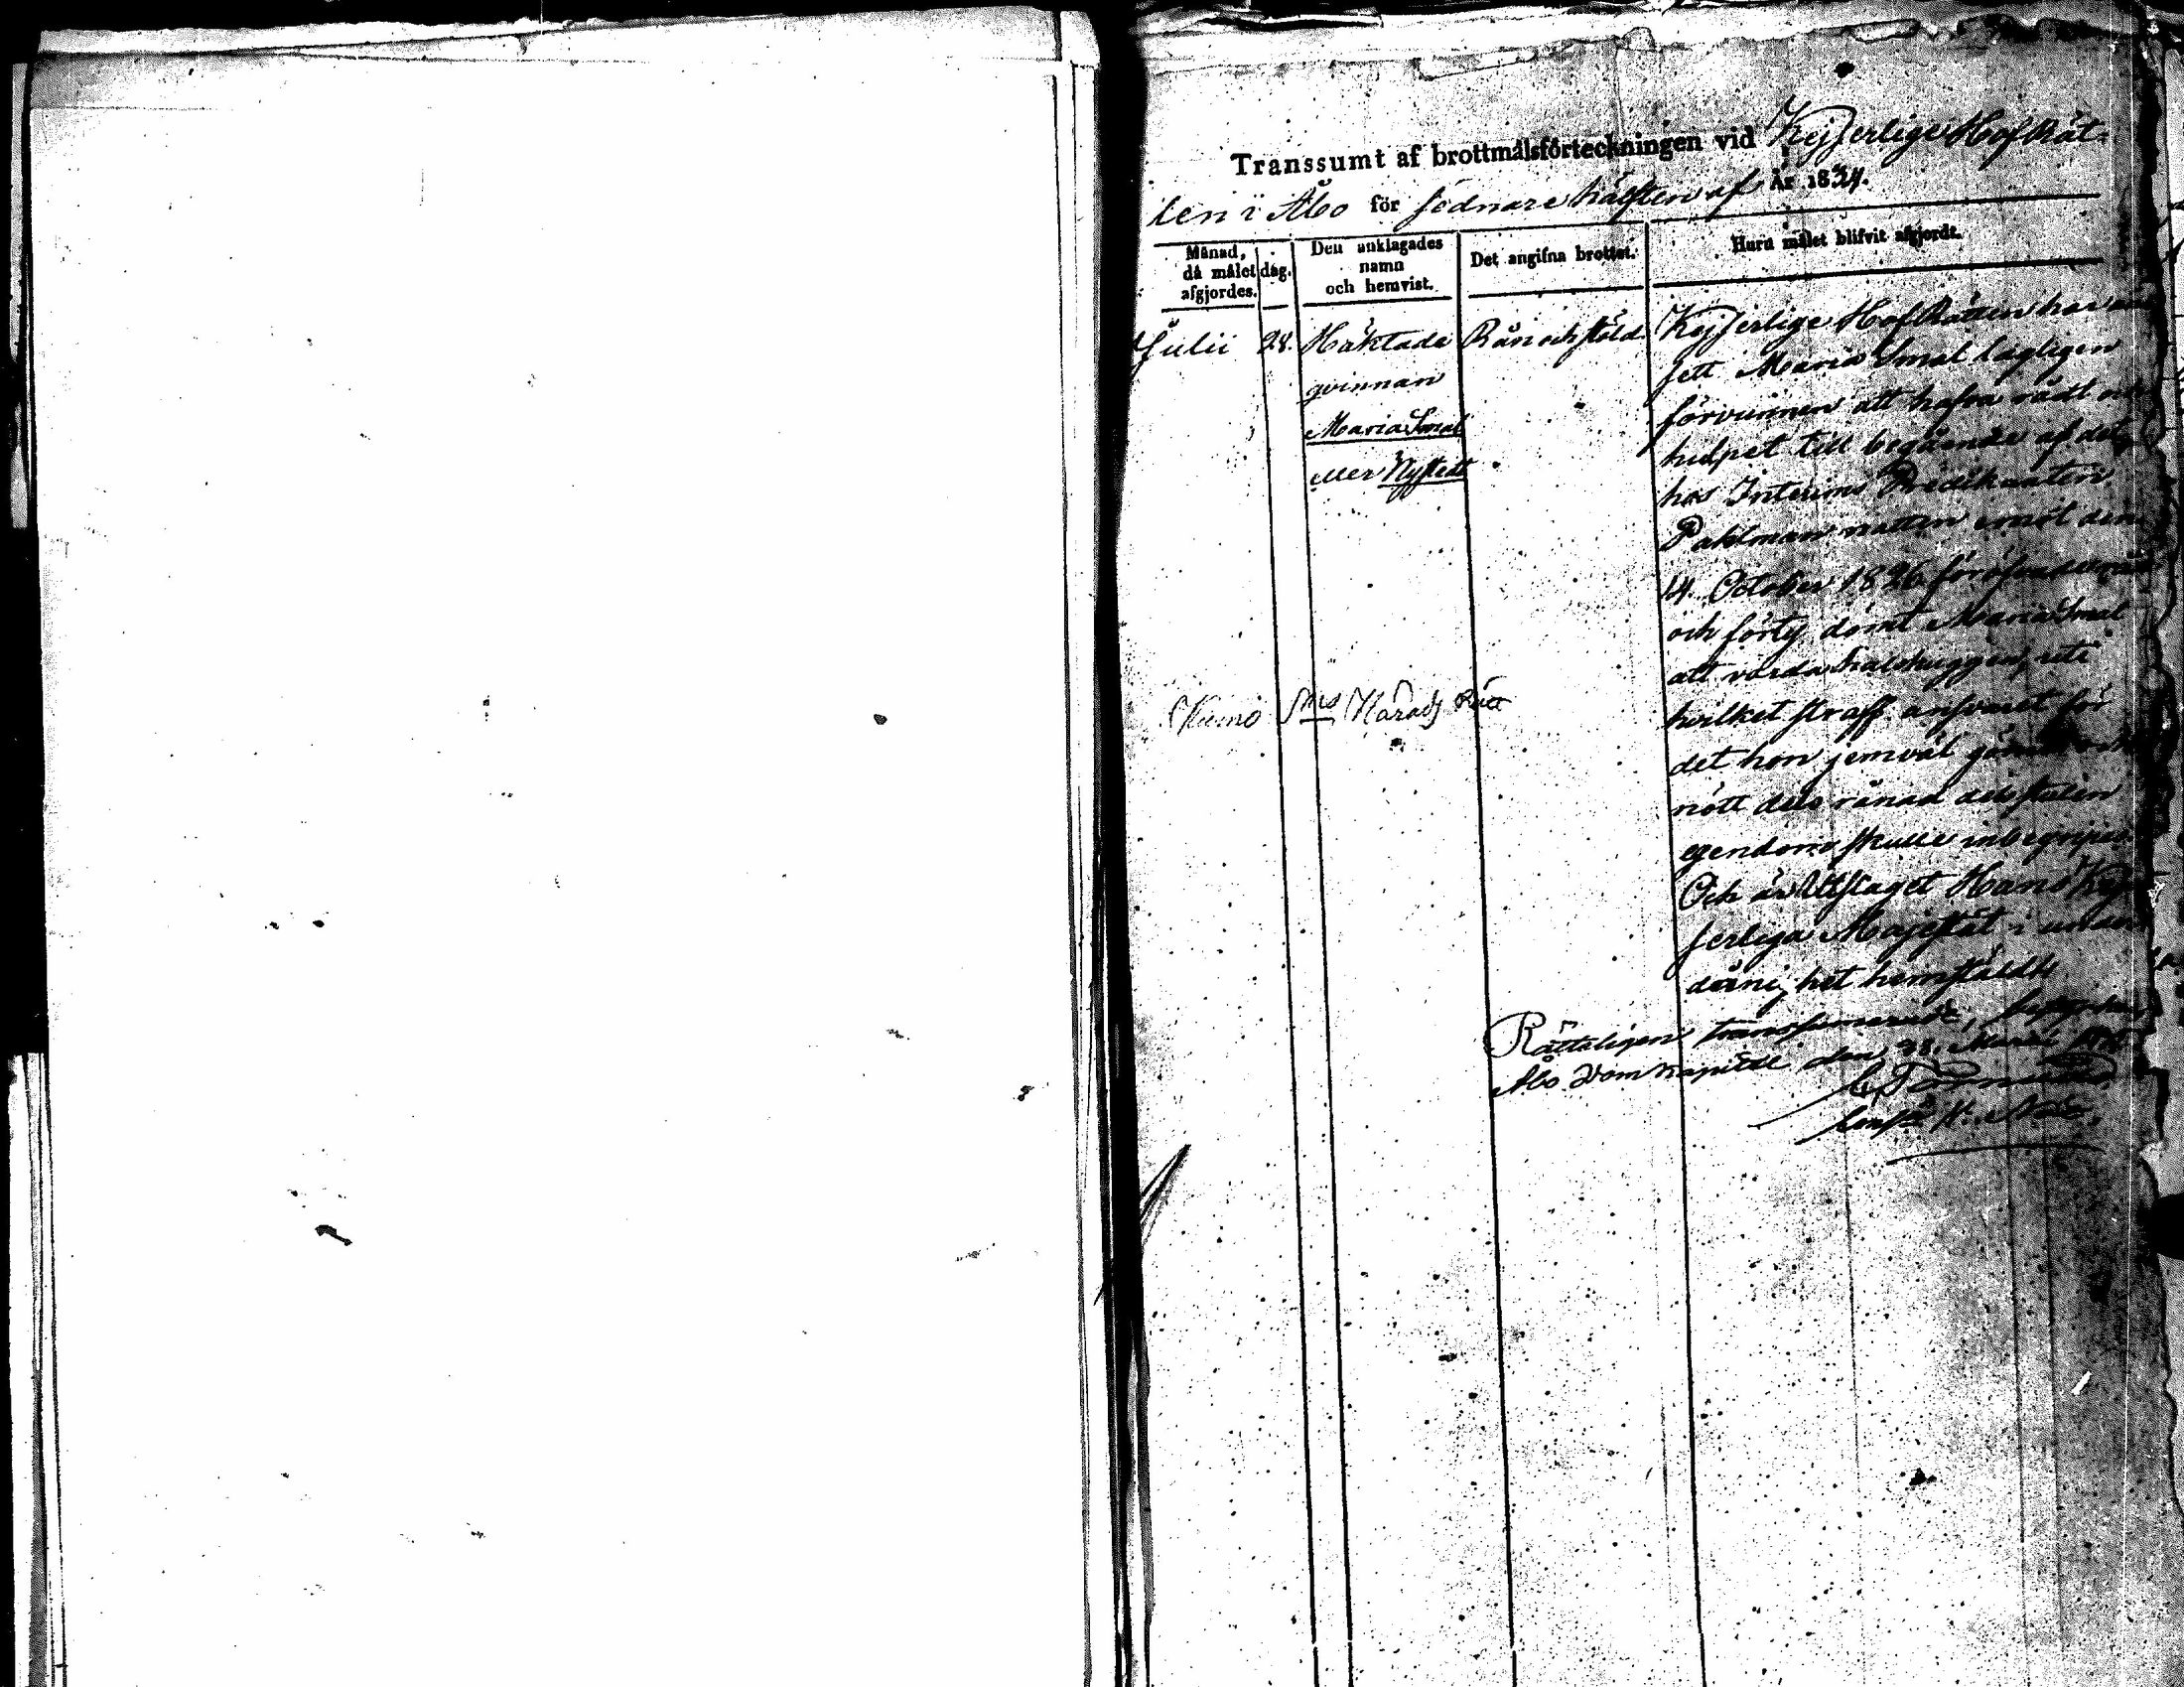 Transsumt af brottmålsförteckningen vid Kejserlige Hof Rät-
ten i Åbo för sednare hälften af År 1834.
Månad, då målet afgjordes. dag. Den anklagades namn och hemvist. Det angifna brottet. Huru målet blifvit afgjordt.
Julii 28. Häktade Rån och stöld Kejserlige Hof Rätten har
qvinnan
Maria Smal
eller Nystedt
sett Maria Smal lagligen
förvunnen att hafva rådt och
hulpet till begående af det
hos Interims Predikanten
Pahlman natten emot den
14 October 1826 föröfvade
och förty dömt Maria Smal
att varda halshuggen, uti
hvilket straff ansvaret för
det hon jemväl
nött dels rånad dels stulen
egendom skulle inbegripas
Och är Utslaget Hans Kej-
serliga Majestät i under-
dånighet hemstäldt
Kumo Härads Rätt
Rätteligen transsumeradt, betygar
Åbo Domkapitel den 28. Martii